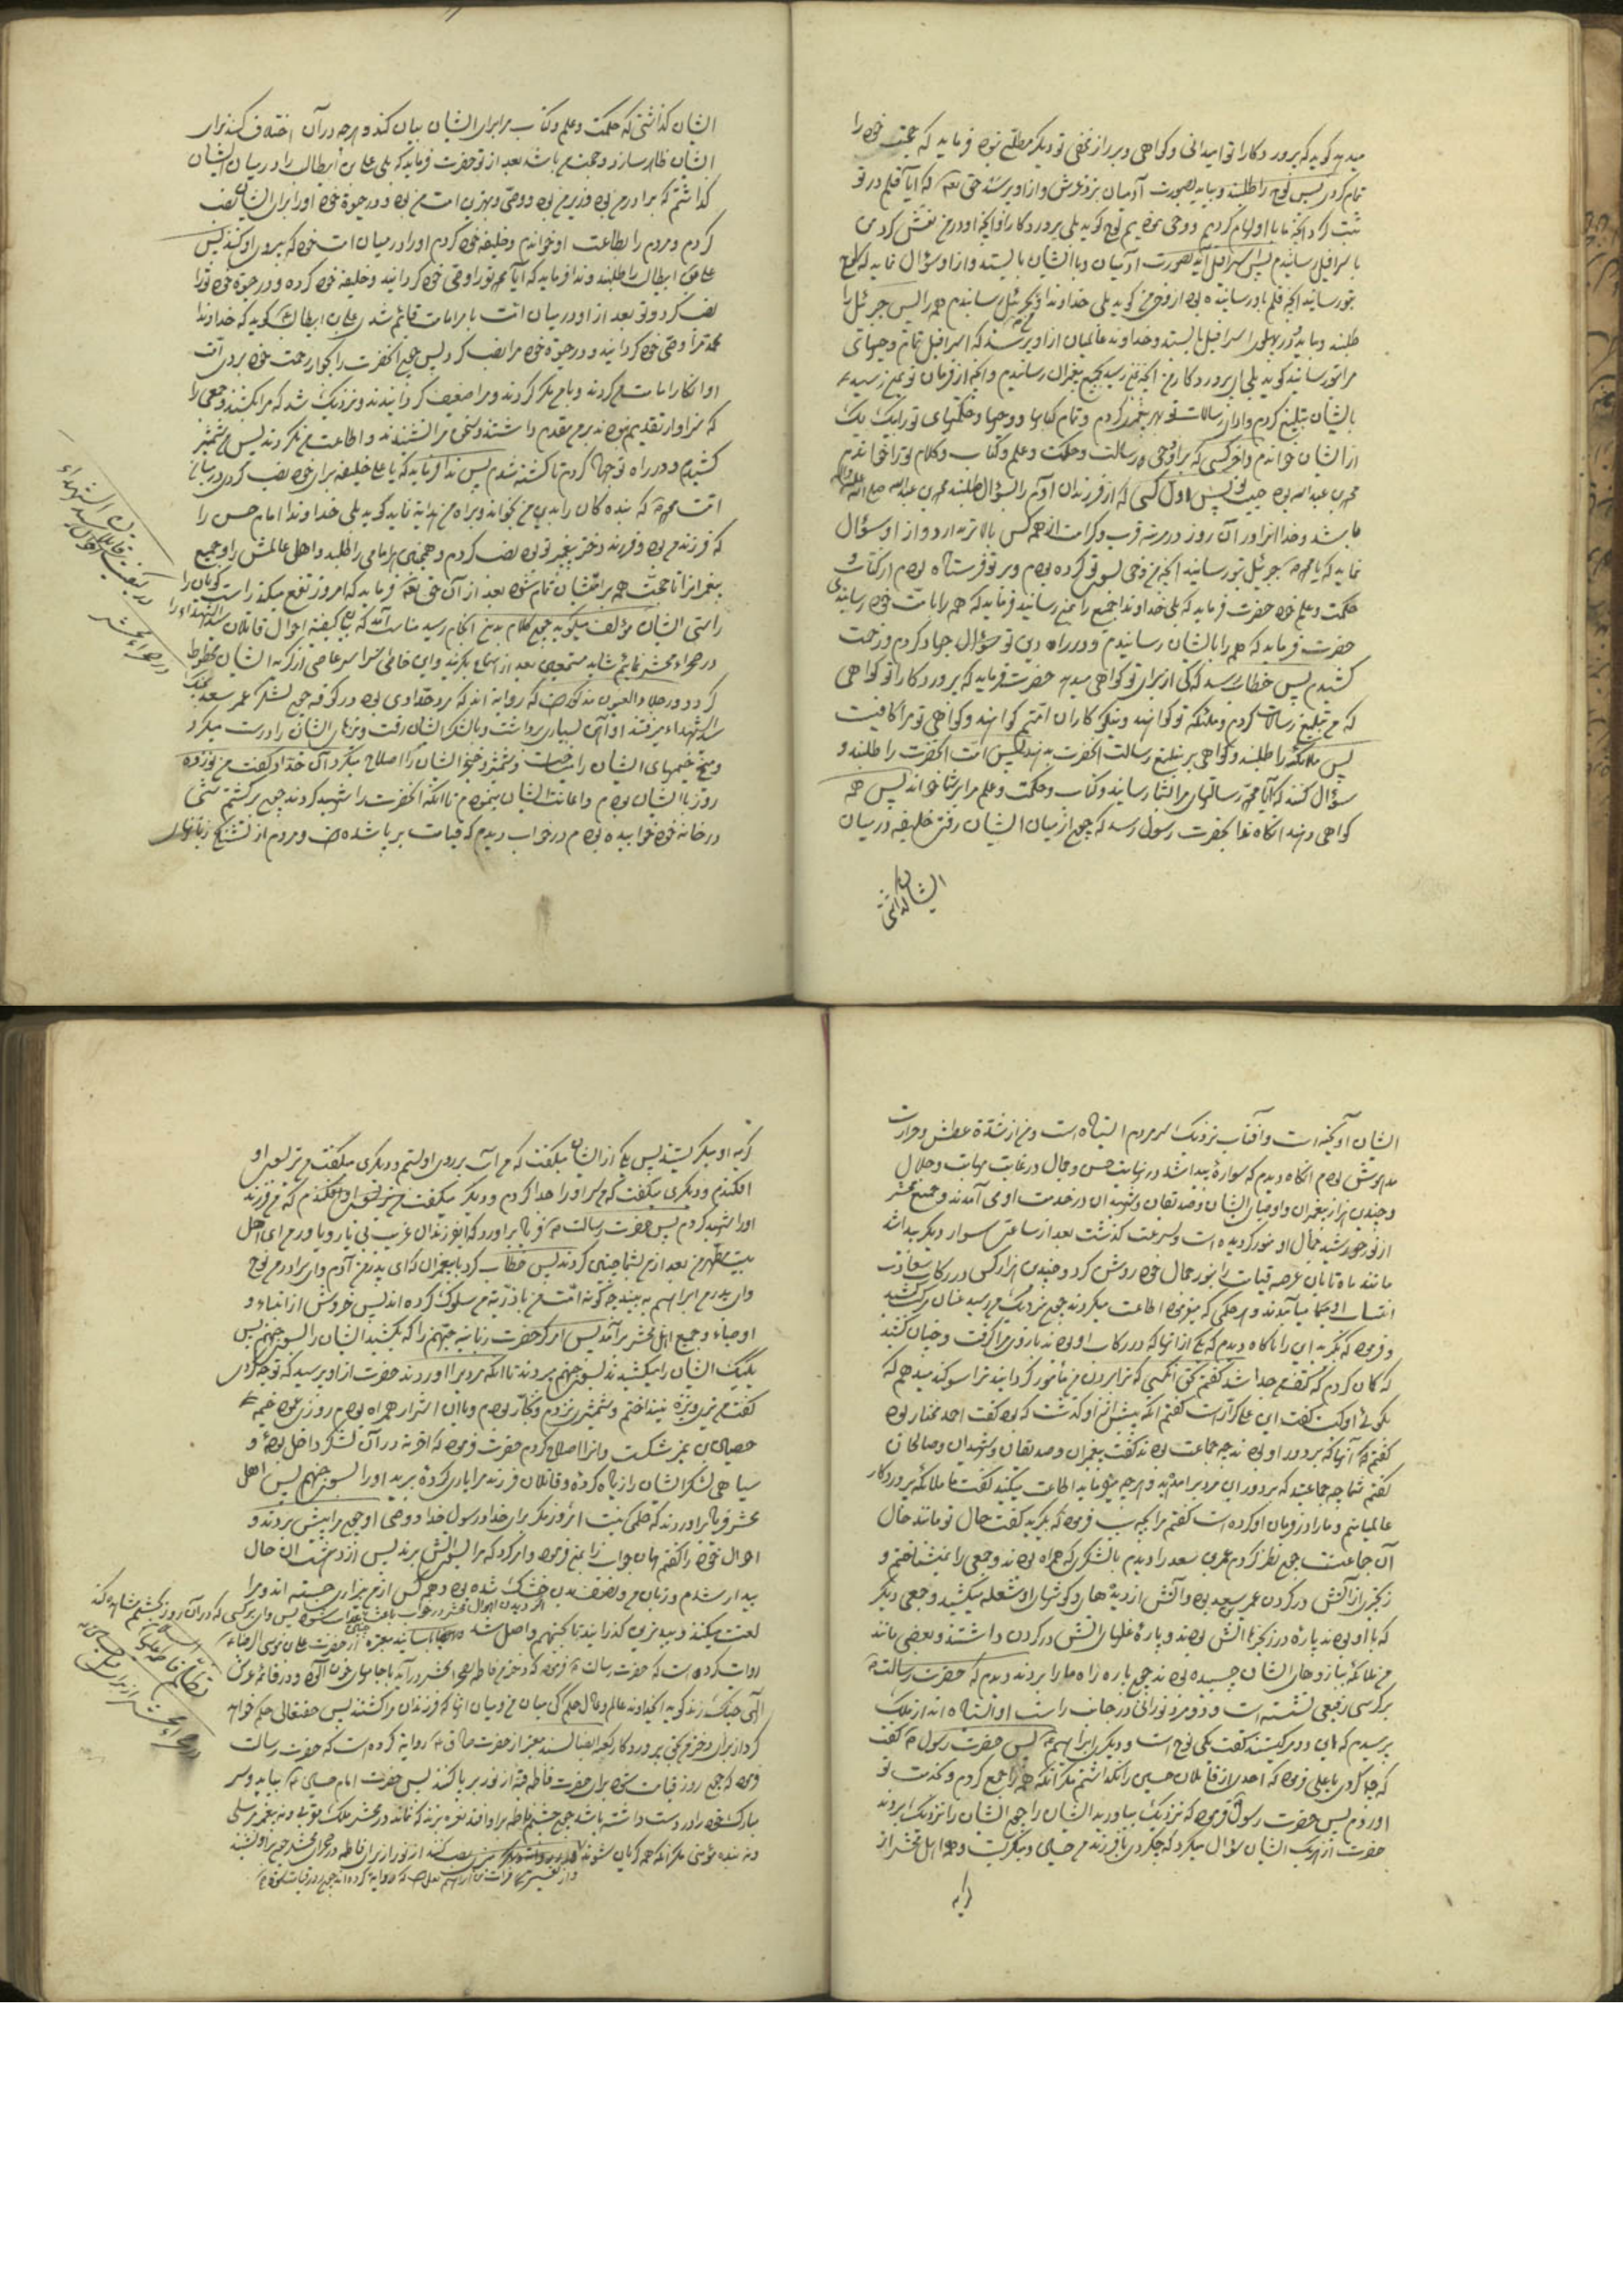 میدهد گوید که پروردگارا تو میدانی و گواهی و بر راز مخفی تو دیگر مطلع نبود فرماید که حجت خود را
تمام کردی پس لوح را طلبند و بیاید بصورت آدمیان نزد عرش و از او پرسد حق تعالی که آیا قلم در تو
ثبت کرد آنچه ما باو الهام کردیم و وحی نمودیم لوح گوید بلی پروردگارا و آنچه او در من نقش کرد من
باسرافیل رسانیدم پس اسرافیل آید بصورت آدمیان و با ایشان بایستد و از او سؤال نماید که لوح
بتو رسانید آنچه قلم باو رسانیده بود از وحی من گوید بلی خداوندا و بجبرئیل رسانیدم همه را پس جبرئیل را
طلبند و بیاید و در پهلوی اسرافیل بایستد و خداوند عالمیان از او پرسد که اسرافیل تمام وحیهای
مرا بتو رسانید گوید بلی ای پروردگار من آنچه بمن رسید بجمیع پیغمبران رسانیدم و آنچه از فرمان تو بمن رسید
بایشان تبلیغ کردم و ادای رسالات تو بهر پیغمبر کردم و تمام کتابها و وحیها و حکمتهای تو را بیک یک
از ایشان خواندم و آخر کسی که بر او وحی و رسالت و حکمت و علم و کتاب و کلام تو را خواندم
محمد بن عبدالله بود حبیب تو پس اول کسی که از فرزندان آدم را بسؤال طلبند محمد بن عبدالله صلی الله علیه و آله
باشد و خدا او را در آن روز در مرتبه قرب و کرامت از همه کس بالاتر بدارد و از او سؤال
نماید که یا محمد جبرئیل بتو رسانید آنچه من وحی بسوی تو کرده بودم و بر تو فرستاده بودم از کتاب و
حکمت و علم خود حضرت فرماید که بلی خداوندا جمیع را بمن رسانید فرماید که همه را بامت خود رسانیدی
حضرت فرماید که همه را بایشان رسانیدم و در راه دین تو جهاد کردم و زحمت
کشیدم پس خطاب رسد که کی از برای تو گواهی میدهد حضرت فرماید که پروردگارا تو گواهی
که من تبلیغ رسالات کردم و ملائکه تو گواهند و نیکوکاران امتم گواهند و گواهی تو مرا کافیست
پس ملائکه را طلبند و گواهی بر تبلیغ رسالت آنحضرت بدهند پس امت آنحضرت را طلبند و
سؤال کنند که آیا محمد رسالتهای مرا بشما رسانید و کتاب و حکمت و علم مرا بر شما خواند پس همه
گواهی دهند آنگاه ندا بحضرت رسول رسد که چون از میان ایشان رفتی خلیفه در میان
ایشان گذاشتی
ایشان گذاشتی که حکمت و علم و کتاب مرا برای ایشان بیان کند و هرچه در آن اختلاف کنند برای
ایشان ظاهر سازد و حجت من باشد بعد از تو حضرت فرماید که بلی علی بن ابیطالب را در میان ایشان
گذاشتم که برادر من بود و وزیر من بود و وصی و بهترین امت من بود و در حیوة خود او را برای ایشان نصب
کردم و مردم را بطاعت او خواندم و خلیفه خود کردم او را در میان امت خود که پیروی او کنند پس
علی بن ابیطالب را طلبند و ندا فرماید که آیا محمد تو را وصی خود گردانید و خلیفه خود کرده و در حیوة خود تو را
نصب کرد و تو بعد از او در میان امت بامر امامت قائم شدی علی بن ابیطالب گوید که خداوندا
محمد مرا وصی خود گردانید و در حیوة خود مرا نصب کرد پس چون آنحضرت را بجوار رحمت خود بردی امت
او انکار امامت من کردند و با من مکر کردند و مرا ضعیف گردانیدند و نزدیک شد که مرا بکشند و جمعی را
که سزاوار تقدیم نبودند بر من مقدم داشتند و سخن مرا نشنیدند و اطاعت من نکردند پس من شمشیر
کشیدم و در راه تو جهاد کردم تا کشته شدم پس ندا فرماید که یا علی خلیفه برای خود نصب کردی در میان
امت محمد که بندگان را بدین من بخواند و براه من هدایت نماید گوید بلی خداوندا امام حسن را
که فرزند من بود و فرزند دختر پیغمبر تو بود نصب کردم و همچنین هر امامی را طلبد و اهل عالمش را و جمیع
پیغمبران را تا حجت همه بر امتشان تمام شود بعد از آن حق تعالی فرماید که امروز نفع میکند راست گویان را
راستی ایشان مؤلف میگوید چون کلام بدین انجام رسید مناسب آمد که کیفیت احوال قاتلان سیدالشهداء را
در صحرای محشر نمائیم شاید مستمعین بعد از استماع بگریند و این خاطی سراسر عاصی از گریه ایشان محظوظ
گردد و در جلاء العیون مذکور است که روایت اند که مرد حدادی بود در کوفه چون لشکر عمر سعد بجنگ
سیدالشهداء میرفتند او آهن بسیاری برداشت و با لشکر ایشان رفت و نیزهای ایشان را درست میکرد
و میخ خیمهای ایشان را میساخت و شمشیر و خنجر ایشان را اصلاح میکرد آن حداد گفت من نوزده
روز با ایشان بودم و اعانت ایشان مینمودم تا آنکه آنحضرت را شهید کردند چون برگشتم شبی
در خانه خود خوابیده بودم در خواب دیدم که قیامت برپا شده است و مردم از تشنگی زبانهای
در کیفیت احوال قاتلان سیدالشهداء
در صحرای محشر
ایشان آویخته است و آفتاب نزدیک سر مردم ایستاده است و من از شدة عطش و حرارت
مدهوش بودم آنگاه دیدم که سواره پیدا شد در نهایت حسن و جمال در غایت مهابت و جلال
و چندین هزار پیغمبران و اوصیای ایشان و صدیقان و شهیدان در خدمت او می آمدند و جمیع محشر
از نور خورشید جمال او منور گردیده است و بسرعت گذشت بعد از ساعتی سوار دیگر پیدا شد
مانند ماه تابان عرصه قیامت را بنور جمال خود روشن کرد و چندین هزار کس در رکاب سعادت
انتساب او میامدند و هر حکمی که میفرمود اطاعت میکردند چون نزدیک من رسید عنان مرکب کشید
و فرمود که بگیرید این را ناگاه دیدم که یکی از آنها که در رکاب او بودند بازوی مرا گرفت و چنان کشید
که گمان کردم که کتفم جدا شد گفتم بحق آنکس که ترا بردن من مأمور گردانید ترا سوگند میدهم که
بگوئی او کیست گفت این علی کرار است گفتم آنکه پیش از او گذشت که بود گفت احمد مختار بود
گفتم آنها که بر دور او بودند چه جماعت بودند گفت پیغمبران و صدیقان و شهیدان و صالحان
گفتم شما چه جماعتید که بر دور این مرد برآمده اید و هرچه میفرماید اطاعت میکنید گفت ما ملائکه پروردگار
عالمیانیم و ما را در فرمان او کرده است گفتم مرا بچه سبب فرمود که بگیرید گفت حال تو مانند حال
آن جماعتست چون نظر کردم عمر بن سعد را دیدم با لشکری که همراه بودند و جمعی را نمیشناختم و
زنجیری از آتش در گردن عمر سعد بود و آتش از دیدهها و گوشهای او شعله میکشید و جمعی دیگر
که با او بودند پاره در زنجیرها آتش بودند و پاره غلهای آتش در گردن داشتند و بعضی مانند
من ملائکه ببازوهای ایشان چسبیده بودند چون پاره راه ما را بردند دیدم که حضرت رسالت
بر کرسی رفیعی نشسته است و دو مرد نورانی در جانب راست او ایستاده اند از ملک
پرسیدم که این دو مرد کیستند گفت یکی نوح است و دیگری ابراهیم پس حضرت رسول گفت
که چه کردی یا علی فرمود که احدی از قاتلان حسین را نگذاشتم مگر آنکه همه را جمع کردم و بخدمت تو
آوردم پس حضرت رسول فرمود که نزدیک بیاورید ایشان را چون ایشان را نزدیک بردند
حضرت از هریک ایشان سؤال میکرد که چه کردی با فرزند من حسین و میگریست و همه اهل محشر از
گریه
گریه او میگریستند پس یکی از ایشان میگفت که من آب بر روی او بستم و دیگری میگفت من تیر بسوی او
افکندم و دیگری میگفت که من سر او را جدا کردم و دیگر میگفت که من فرزند
او را شهید کردم پس حضرت رسالت فریاد برآورد که ای فرزندان غریب بی یار و یاور من ای اهل
بیت مطهر من بعد از من بشما چنین کردند پس خطاب کرد با پیغمبران که ای پدر من آدم و ای برادر من نوح
و ای پدر من ابراهیم ببینید چگونه امت من با ذریه من سلوک کرده اند پس خروش از انبیاء و
اوصیاء و جمیع اهل محشر برآمد پس امر کرد حضرت زبانیه جهنم را که بکشید ایشان را بسوی جهنم پس
یک یک ایشان را میکشیدند بسوی جهنم میبردند تا آنکه مردی را آوردند حضرت از او پرسید که تو چه کردی
گفت من تیر و نیزه نینداختم و شمشیر نزدم و نجار بودم و با این اشرار همراه بودم روزی عمود خیمه
حصین بن نمیر شکست و آنرا اصلاح کردم حضرت فرمود که آخر نه در آن لشکر داخل بودی و
سیاهی لشکر ایشان را زیاده کردی و قاتلان فرزند مرا یاری کردی ببرید او را بسوی جهنم پس اهل
محشر فریاد برآوردند که حکمی نیست امروز مگر برای خدا و رسول خدا و وصی او چون مرا پیش بردند و
احوال خود را گفتم همان جواب را بمن فرمود و امر کرد که مرا بسوی آتش برند پس از دهشت آن حال
بیدار شدم و زبان من و نصف بدن من خشک شده بود و همه کس از من بیزاری جسته اند و مرا
لعنت میکنند
روایت کرده است که حضرت رسالت فرمود که دخترم فاطمه بصحرای محشر درآید با جامهای خون آلوده و در قائمه عرش
الهی چنگ زند گوید ای خداوند عالم و عادل حکم کن میان من و میان آنها که فرزندان مرا کشتند پس حقتعالی حکم خواهد
کرد از برای دختر من بحق پروردگار کعبه ایضا بسند معتبر از حضرت صادق روایة کرده است که حضرت رسالت
فرمود که چون روز قیامت شود برای حضرت فاطمه قبه از نور برپا کنند پس حضرت امام حسین بیاید و سر
مبارک خود را در دست داشته باشد چون چشم فاطمه بر او افتد نعره بزند که نماند در محشر ملک مقربی و نه پیغمبر مرسلی
و نه بنده مؤمنی مگر آنکه همه گریان شوند
در تظلم فاطمه
در صحرای محشر